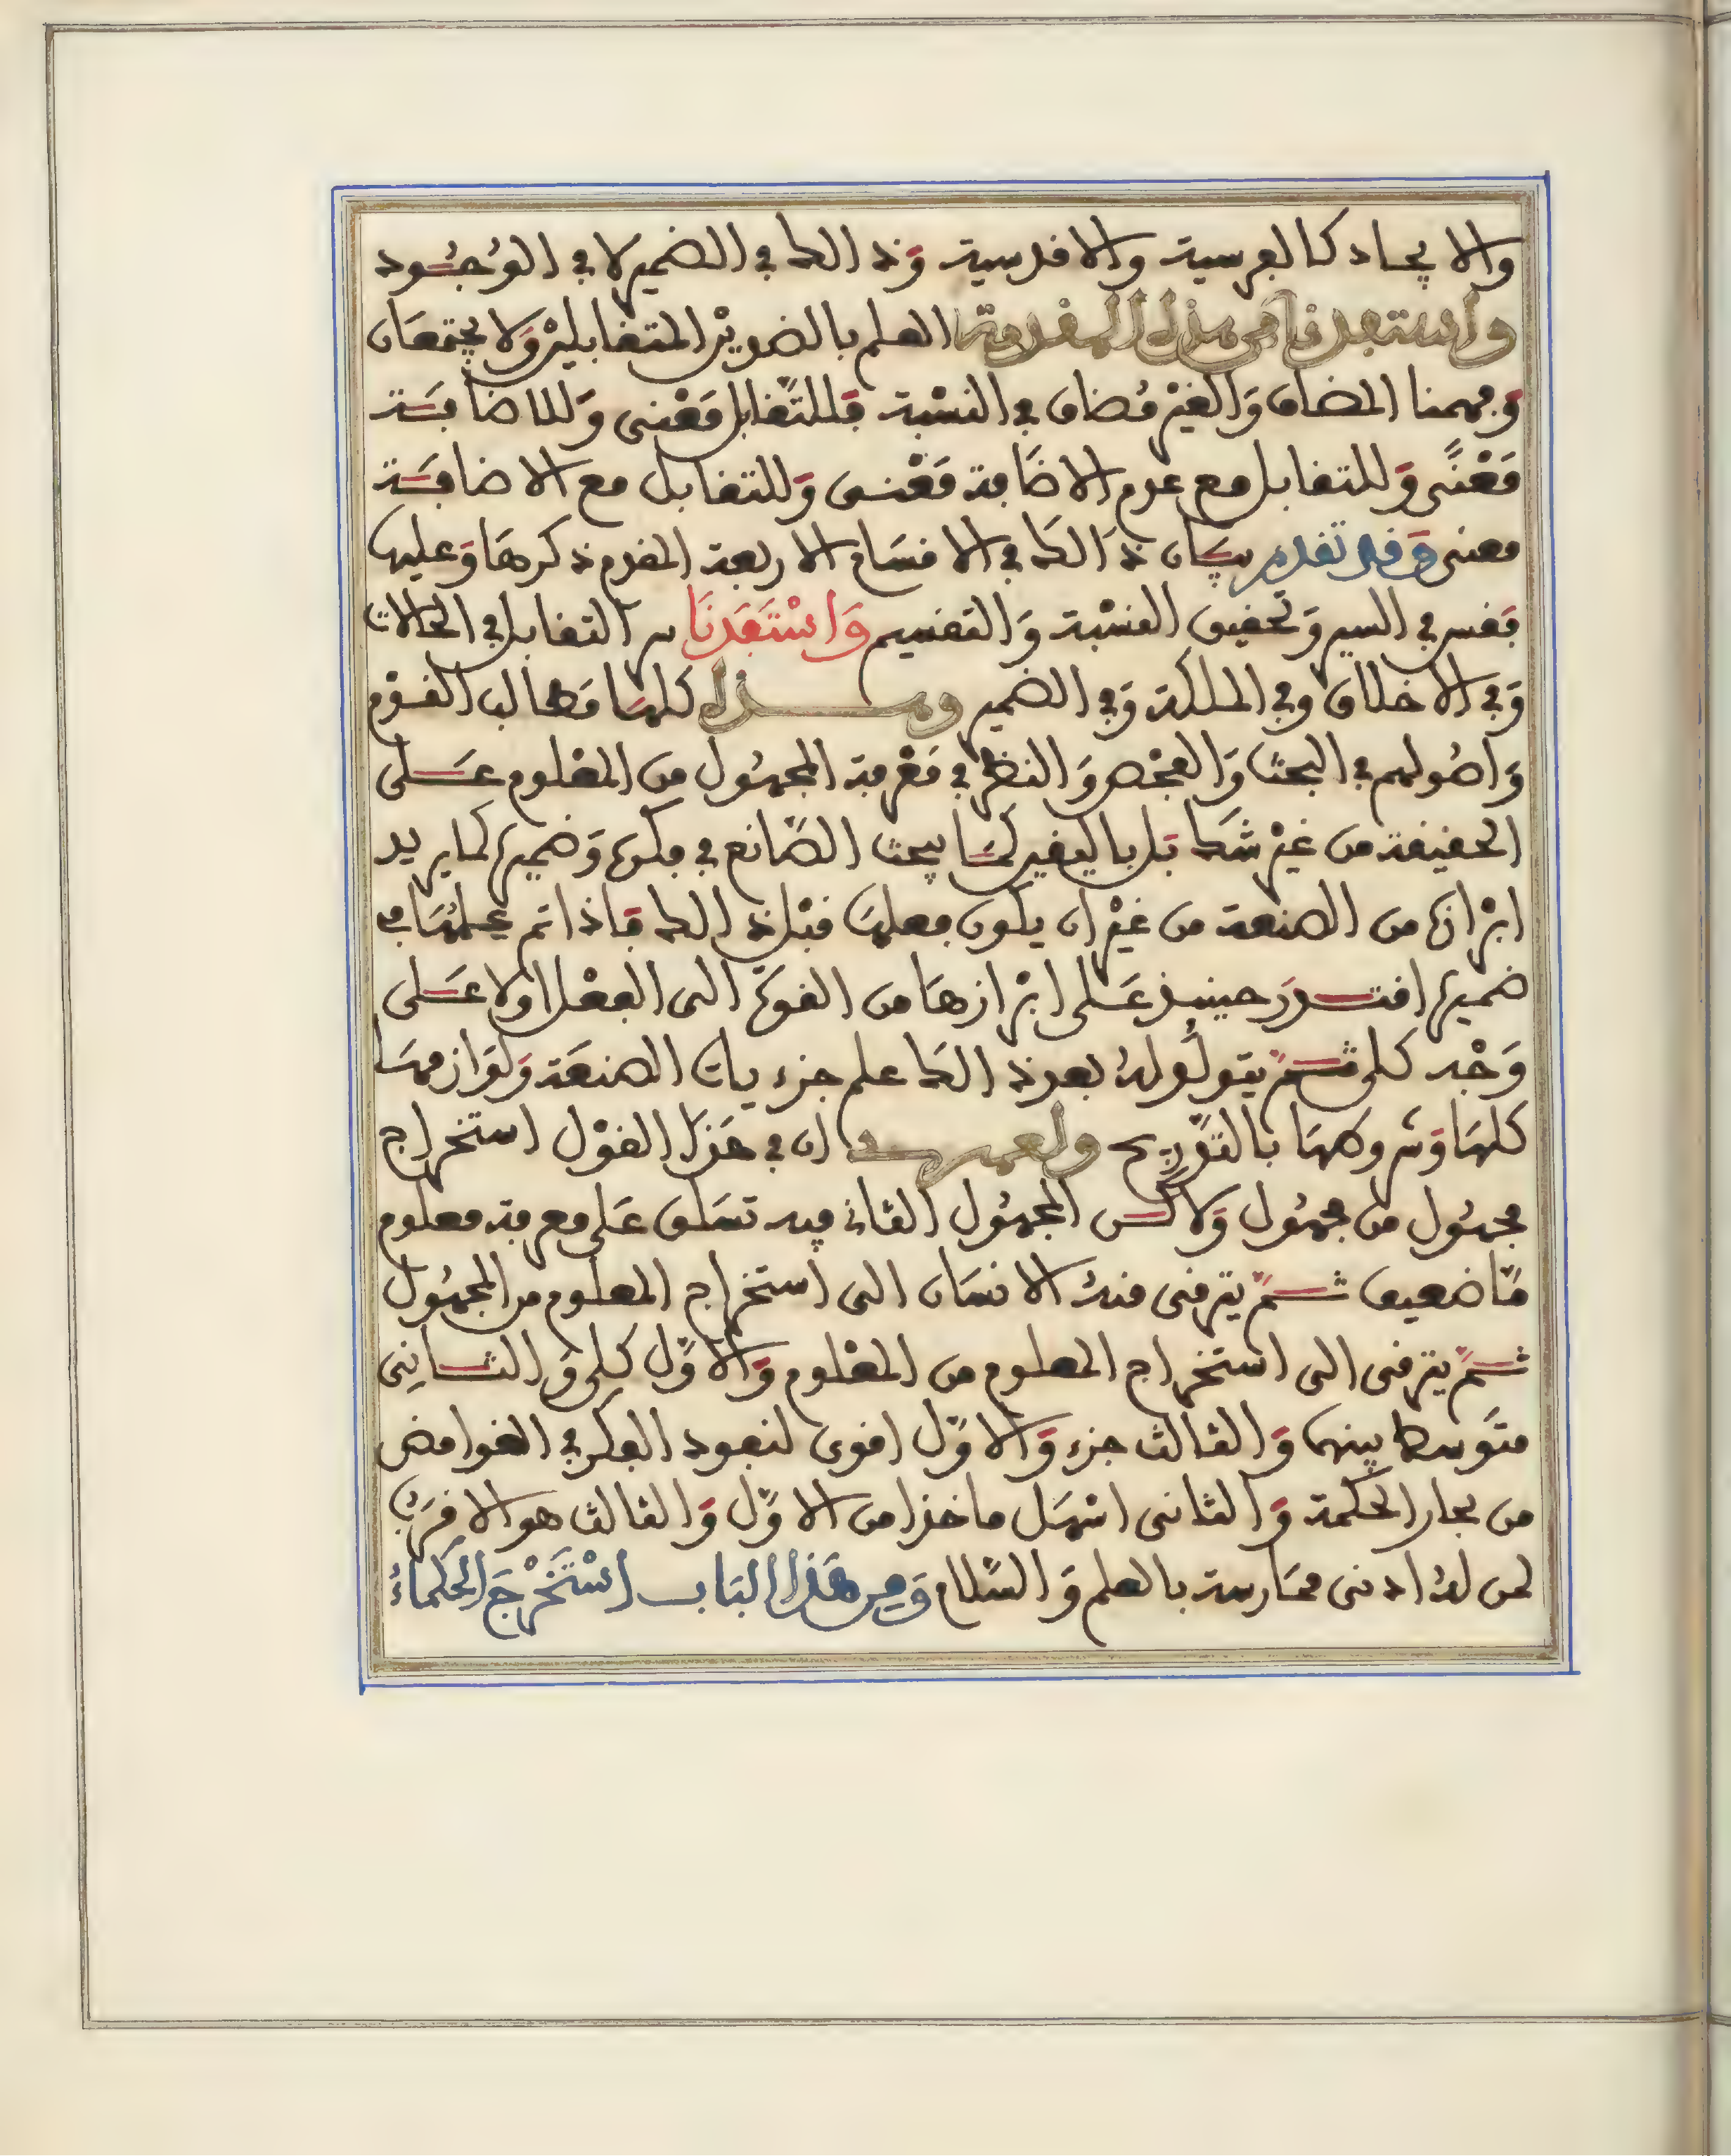 والايجاد كالفرسية والافدسية وَذالك في الضمير لا في الوُجُود
واستفدنا من هذه المقدمة العلم بالضدويْن المتقابليْن وَلا يجتمعَان
وجهمنا المضاف وَالغيْر مُضاف في النسْبة فللتَّقابل مَعْنى وَللاضافَة
مَعْنًى وَللتقابل مع عدم الاضَافة مَعْنى وَللتقابل مع الاضافَة
معنى وَقد تقدم بيَان ذَالك في الاقسَام الاربعة المقدم ذكرهَا وَعليها
فقس في السير وَتحقيق النسْبة وَالتقسيم وَاسْتَفَدنَا سر التقابل في الحالات
وَفي الاخلاق وفي الملكة وَفي الضمير وهذه كلهَا مَطالب القوْم
وَاصُولهم في البحث وَالفحْص وَالنظر في مَعْرفة المجهُول من المعْلوم عَلى
الحقيقة من غيْر شك بَل باليقين كمَا يبحث الصَّانع في فكره وَضميره لما يريد
ابْرازه من الصنعة من غيْر ان يكون فعلهَا قبْل ذالك فَاذا تم عملهَا في
ضميره اقتدرَ حينيذ عَلى ابْرازهَا من القوة الى الفعْل اولا عَلى
وَجْه كلى ثمَّ يتولد لهُ بعد ذالك علم جزءيات الصنعَة وَلوَازمهَا
كلهَا وَشروطهَا بالتدريج ولعمرى ان في هَذا القوْل استخراج
مجهُول من مجهُول وَلاكن المجهُول الثانى فيه تسَلق عَلى معرفة معلوم
مَّا ضعيف ثمَّ يترقى منهُ الانسَان الى استخراج المعلوم من المجهُول
ثمَّ يترقى الى استخراج المعلوم من المعْلوم وَالاوَّل كلى وَالثانِى
متَوسط بينهما وَالثالث جزء وَالاوَّل اقوى لنفود الفكر في الغوامض
من بحار الحكمة وَالثانى اسْهَل ماخذا من الاوَّل وَالثالث هو الاقرَبُ
لمن لهُ ادنى ممَارسة بالعلم وَالسَّلام وَمِن هَذا البَاب اسْتَخْرَجَ الحكماءُ